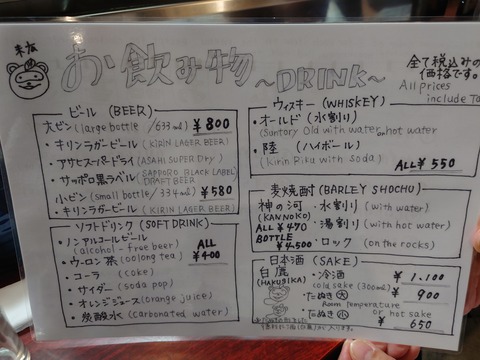 末広
お飲み物
~DRINK~
全て税込みの
価格です。
All prices
include Ta
ビール (BEER)
大ビン (large bottle /633ml) ¥800
・キリンラガービール (KIRIN LAGER BEER)
・アサヒスーパードライ (ASAHI SUPER DRY)
・サッポロ黒ラベル (SAPPORO BLACK LABEL DRAFT BEER)
小ビン (small bottle / 334ml) ¥580
・キリンラガービール (KIRIN LAGER BEER)
ソフトドリンク (SOFT DRINK)
・ノンアルコールビール
(alcohol-free beer)
ALL
¥400
・ウーロン茶 (oolong tea)
・コーラ (coke)
・サイダー (soda pop)
・オレンジジュース (orange juice)
・炭酸水 (carbonated water)
ウィスキー (WHISKEY)
・オールド (水割り)
(Suntory Old with water or hot water
・陸 (ハイボール)
(Kirin Riku with soda)
ALL ¥550
麦焼酎 (BARLEY SHOCHU)
神の河
(KANNOKO)
ALL ¥470
BOTTLE
¥4,500
・水割り (with water)
・湯割り (with hot water)
・ロック (on the rocks)
日本酒 (SAKE)
白鹿
(HAKUSIKA)
・冷酒
(cold sake (300ml)
¥1,100
・たぬき 大
¥900
Room temperature
or hot sake
・たぬき 小
¥650